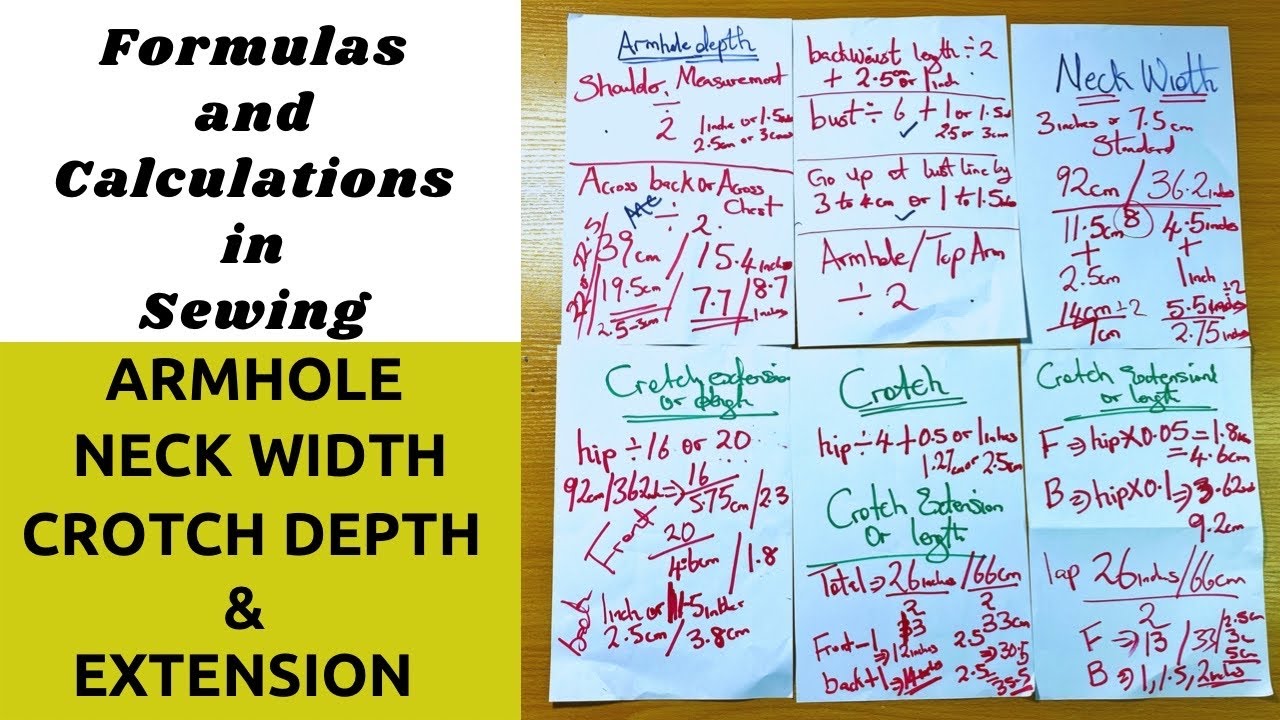 Formulas
and
Calculations
in
Sewing
ARMHOLE
NECK WIDTH
CROTCH DEPTH
&
EXTENSION
Armhole depth
Shoulder Measurement
÷
2
1 inche or 1.5
2.5cm or 3cm
Across back or Across
Chest
÷ 2
39cm / 15.4 inches
19.5cm / 7.7 / 8.7
2.5-3cm inches
backwaist length ÷ 2
+ 2.5cm or 1 inch
bust ÷ 6 + 1 or 1.5
2.5 or 3cm
Go up at bust line by
3 to 4cm or 1 to 1.5
Armhole / Top Arm
÷ 2
Neck Width
3 inches or 7.5cm
Standard
92cm / 36.2 inches
8
11.5cm 4.5 inches
+ +
2.5cm 1 inch
14cm ÷ 2 5.5 inches ÷ 2
7cm 2.75 inches
Crotch extension
or
hip ÷ 16 or 20
92cm / 362 => 16
575cm / 2.3
Front
20
4.6cm / 1.8
back
1 inch or 1.5
2.5cm / 3.8cm
Crotch
hip ÷ 4 + 0.5 or 1 inches
1.27cm or 2.5cm
Crotch Extension
Or length
Total => 26 inches / 66cm
2 2
33cm
Front - 1 => 12 inches 2.5 => 30.5
back + 1 => 14 inches 2.5 = 35.5
Crotch Extension
or length
F => hip X 0.05 = 1.8
= 4.6cm
B => hip X 0.1 => 3.62
9.2cm
26 inches / 66cm
2
F => 13 / 33 / 2.5cm
5cm
B => 1, 1.5, 2 inches